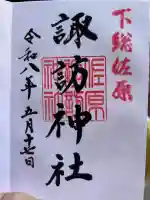 下総佐原
諏訪神社
令和八年 五月十七日